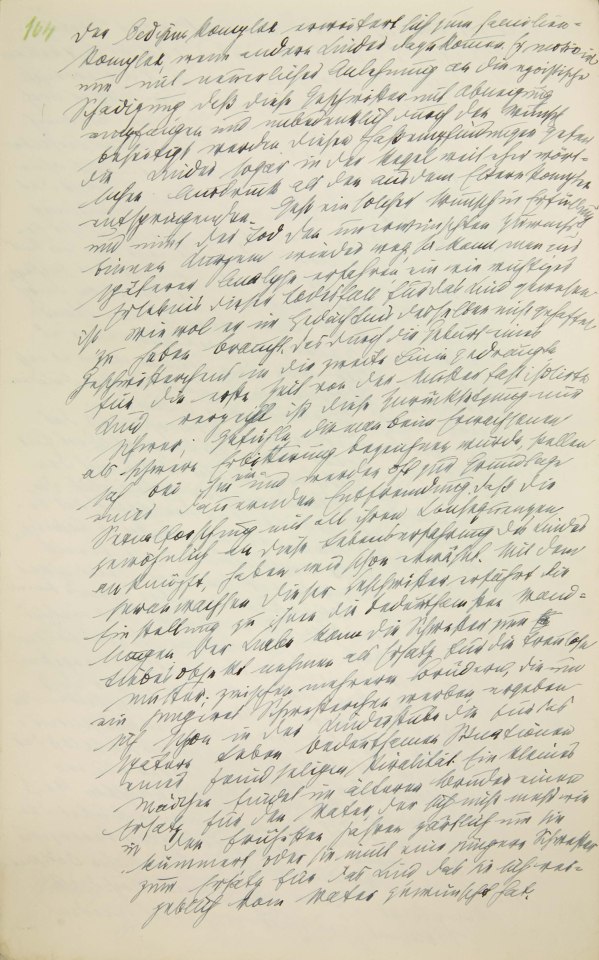 104
Der Oedipuskomplex erweitert sich zum Familien-
komplex, wenn andere Kinder dazu komen. Er motivirt
nun mit neuerlicher Anlehnung an die egoistische
Schädigung daß diese Geschwister mit Abneigung
empfangen und unbedenklich durch den Wunsch
beseitigt werden. Diesen Haßempfindungen geben
die Kinder sogar in der Regel weit eher wört-
lichen Ausdruck als den aus dem Elternkomplex
entspringenden. Geht ein solcher Wunsch in Erfüllung
und nimt der Tod den unerwünschten Zuwachs
binnen Kurzem wieder weg, so kann man aus
späterer Analyse erfahren, ein wie wichtiges
Erlebnis dieser Todesfall für das Kind gewesen
ist, wiewol er im Gedächtnis desselben nicht gehaftet
zu haben braucht. Das durch die Geburt eines
Geschwisterchens in die zweite Linie gedrängte
für die erste Zeit von der Mutter fast isolirte
Kind vergißt ihr diese Zurücksetzung nur
schwer; Gefühle, die man beim Erwachsenen
als schwere Erbitterung bezeichnen würde, stellen
sich bei ihm ein und werden oft zur Grundlage
einer dauernden Entfremdung. Daß die
Sexualforschung mit all ihren Konsequenzen
gewöhnlich an diese Lebenserfahrung des Kindes
anknüpft, haben wir schon erwähnt. Mit dem
Heranwachsen dieser Geschwister erfährt die
Einstellung zu ihnen die bedeutsamsten Wand-
lungen. Der Knabe kann die Schwester zum
Liebesobjekt nehmen als Ersatz für die treulose
Mutter; zwischen mehreren Brüdern, die um
ein jüngeres Schwesterchen werben ergeben
sich schon in der Kinderstube die für das
spätere Leben bedeutsamen Situationen
einer feindseligen Rivalität. Ein kleines
Mädchen findet im älteren Bruder einen
Ersatz für den Vater, der sich nicht mehr wie
in den frühesten Jahren zärtlich um sie
kümmert oder sie nimt eine jüngere Schwester
zum Ersatz für das Kind das sie sich ver-
geblich vom Vater gewünscht hat.